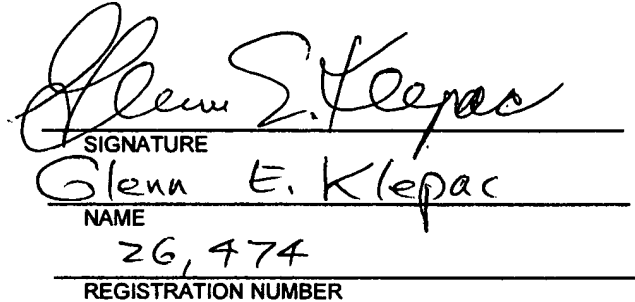 Glenn E. Klepac
SIGNATURE
Glenn E. Klepac
NAME
26,474
REGISTRATION NUMBER